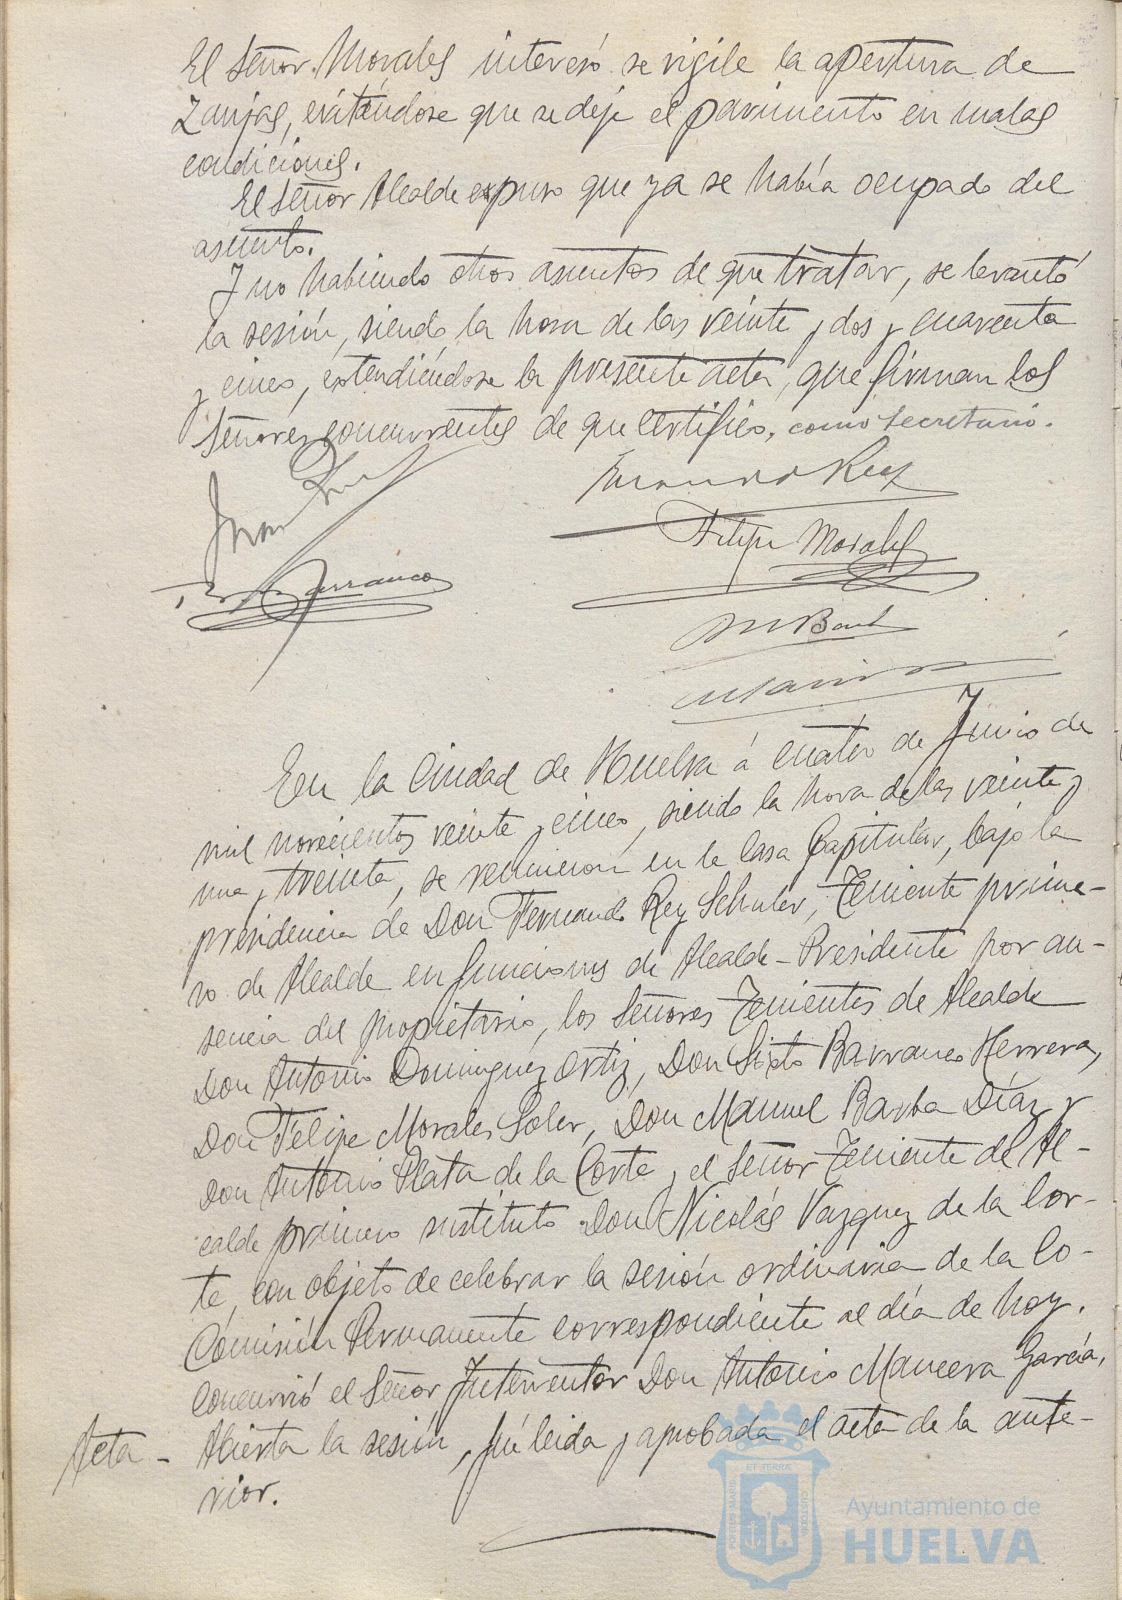 El Señor Morales interesó se vigile la apertura de
zanjas, evitándose que se deje el pavimento en malas
condiciones.
El Señor Alcalde expuso que ya se había ocupado del
asunto.
Y no habiendo otros asuntos de que tratar, se levantó
la sesión, siendo la hora de las veinte y dos y cuarenta
y cinco, extendiéndose la presente acta, que firman los
Señores concurrentes de que certifico, como secretario.
Fernando Rey
Felipe Morales
Barranco
M Barba
En la Ciudad de Huelva á cuatro de Junio de
mil novecientos veinte y cinco, siendo la hora de las veinte y
una y treinta, se reunieron en la Casa Capitular, bajo la
presidencia de Don Fernando Rey Schuler, Teniente prime-
ro de Alcalde en funciones de Alcalde-Presidente por au-
sencia del propietario, los Señores Tenientes de Alcalde
Don Antonio Dominguez Ortiz, Don Sixto Barranco Herrera,
Don Felipe Morales Soler, Don Manuel Barba Díaz y
Don Antonio Plata de la Corte y el Señor Teniente de Al-
calde primero sustituto Don Nicolás Vazquez de la Cor-
te, con objeto de celebrar la sesión ordinaria de la Co-
Comisión Permanente correspondiente al día de hoy.
Concurrió el Señor Interventor Don Antonio Mancera García.
Acta - Abierta la sesión, fué leida y aprobada el acta de la ante-
rior.
Ayuntamiento de
HUELVA